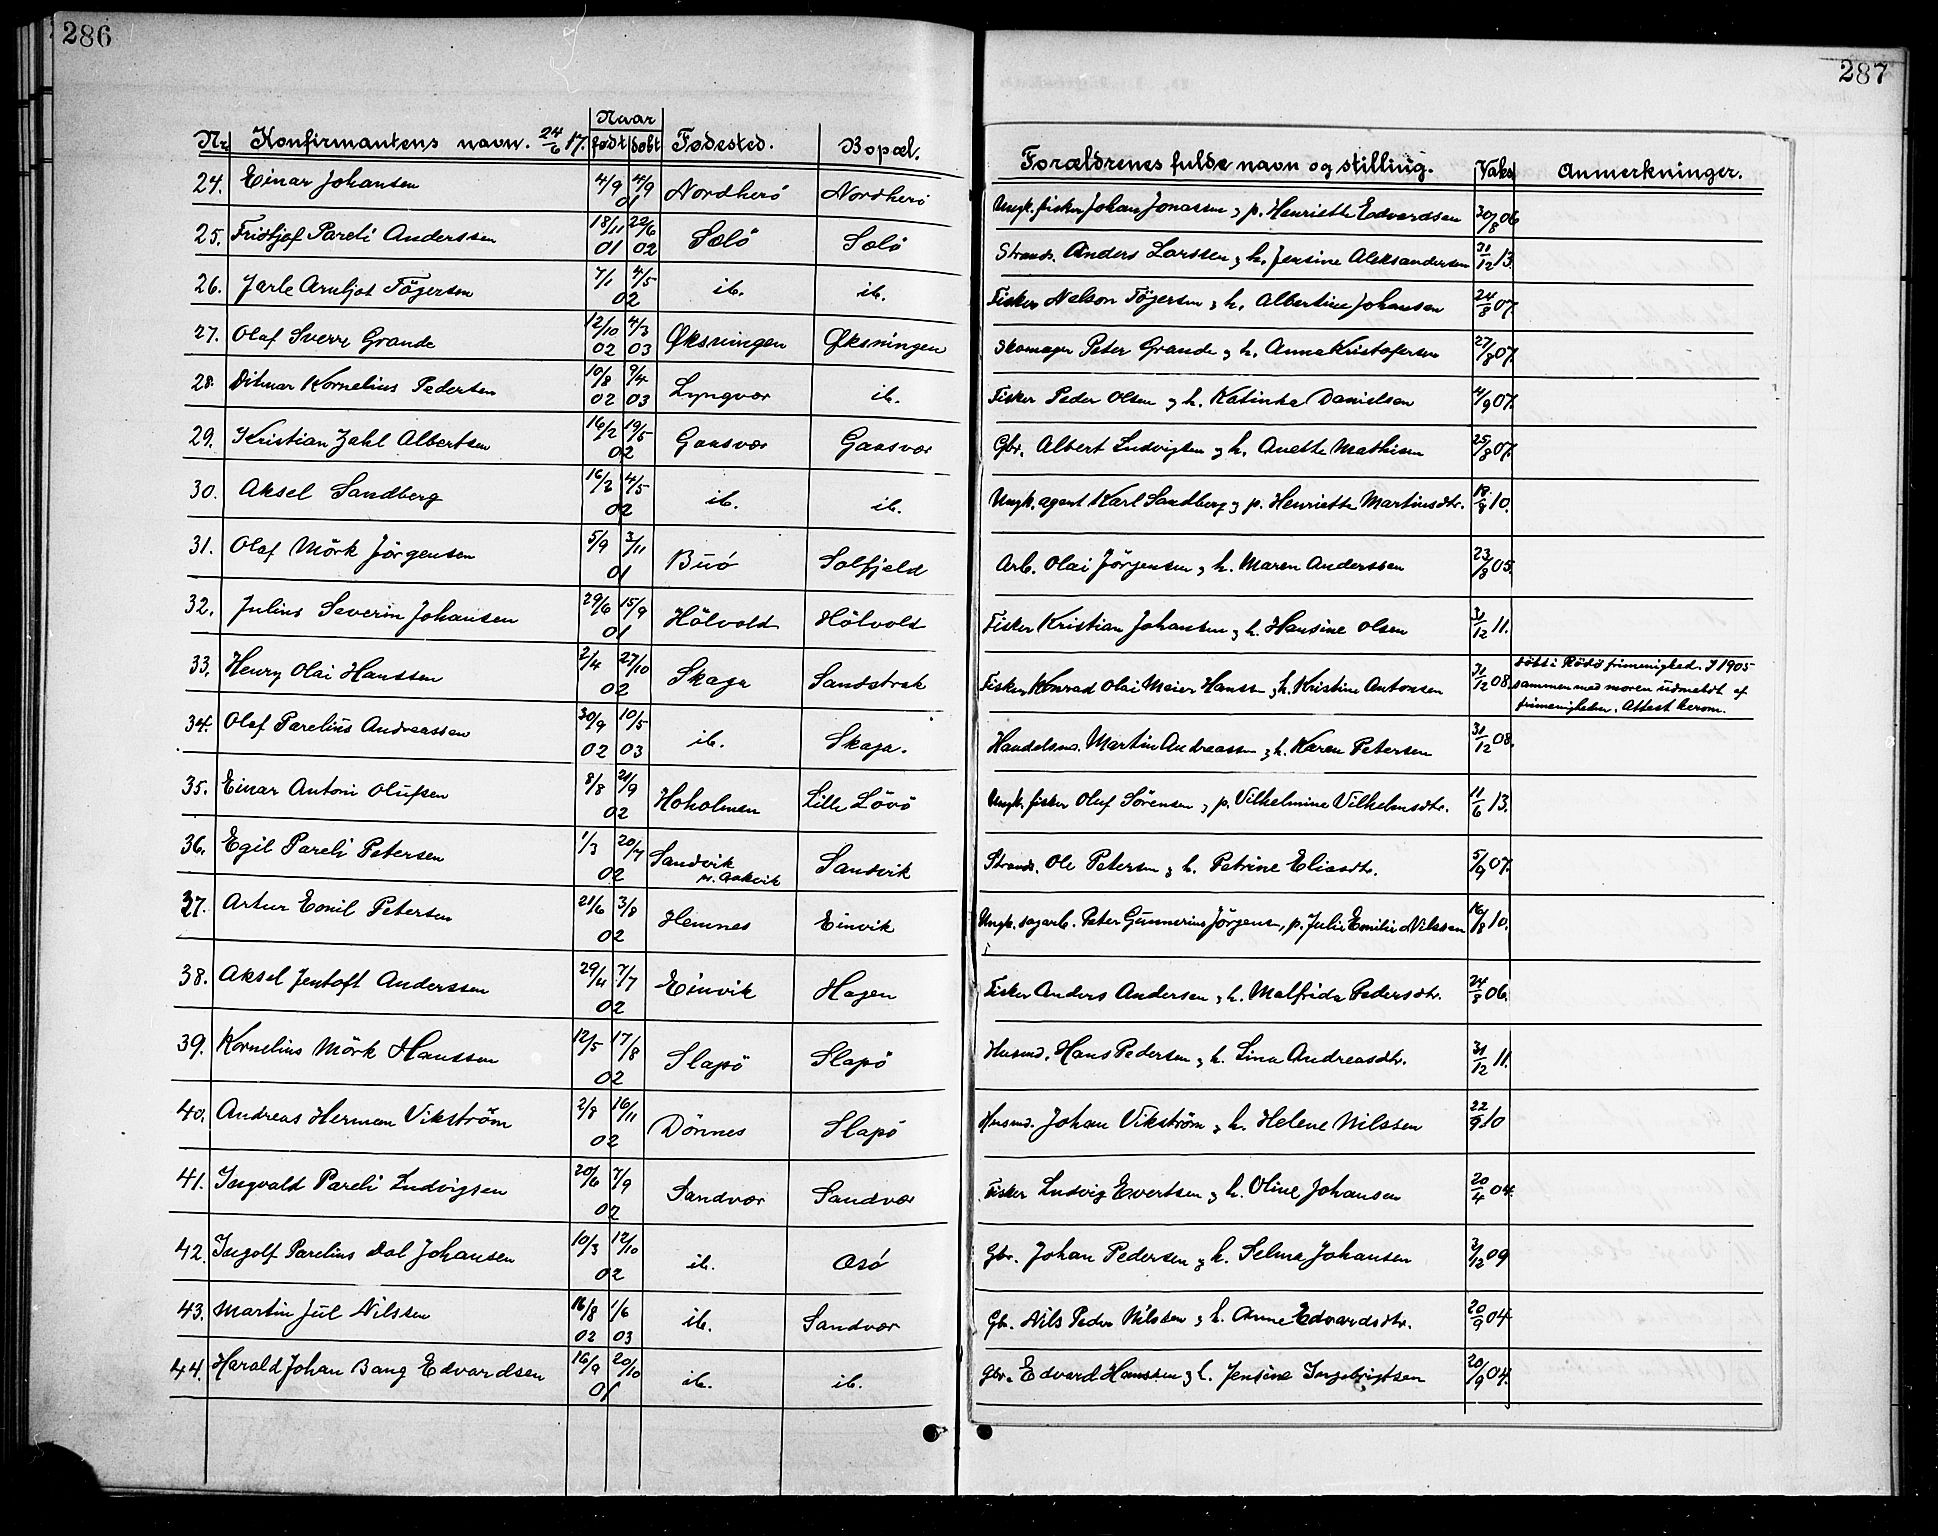 286
Nr. Konfirmantens navn. 24/6 17. Naar født døbt Fødested. Bopæl.
24. Einar Johansen 4/9 4/9 01 Nordherö Nordherö
25. Fridtjof Pareli Anderssen 18/11 01 22/6 02 Solö Solö
26. Jarle Arnljot Tögersen 7/1 4/5 02 ib. ib.
27. Olaf Sverre Grande 12/10 02 4/3 03 Øksningen Øksningen
28. Ditmar Kornelius Pedersen 10/8 02 9/4 03 Lyngvær ib.
29. Kristian Zahl Albertsen 16/2 19/5 02 Gaasvær Gaasvær
30. Aksel Sandberg 16/2 4/5 02 ib. ib.
31. Olaf Mörk Jörgensen 5/9 3/11 01 Buö Solfjeld
32. Julius Severin Johansen 29/6 15/9 01 Hölvold Hölvold
33. Henry Olai Hanssen 2/4 27/10 02 Skaga Sandstrak
34. Olaf Parelius Andreassen 30/9 02 10/5 03 ib. Skaga.
35. Einar Antoni Olufsen 8/8 21/9 02 Hoholmen Lille Lövö
36. Egil Pareli Petersen 1/3 20/7 02 Sandvik Sandvik
37. Artur Emil Petersen 21/6 3/8 02 Hemnes Einvik
38. Aksel Jentoft Anderssen 29/4 7/7 02 Einvik Hagen
39. Kornelius Mörk Hanssen 12/5 17/8 02 Slapö Slapö
40. Andreas Herman Vikström 2/8 16/11 02 Dönnes Slapö
41. Ingvald Pareli Ludvigsen 20/6 7/9 02 Sandvær Sandvær
42. Ingolf Parelius Dal Johansen 10/3 12/10 02 ib. Osö
43. Martin Jul Nilssen 16/8 02 1/6 03 ib. Sandvær
44. Harald Johan Bang Edvardsen 16/9 20/10 01 ib. ib.
287
Forældrenes fulde navn og stilling. Vaks. Anmerkninger.
Ungk. fisker Johan Jonassen og p. Henriette Edvardsen 30/8 06
Strands. Anders Larssen og h. Jensine Aleksandersen 31/12 13.
Fisker Nelson Tögersen og h. Albertine Johansen 24/8 07.
Skomager Peter Grande og h. Anna Kristofersen 27/8 07.
Fisker Peder Olsen og h. Katinka Danielsen 4/9 07.
Gbr. Albert Ludvigsen og h. Anette Mathisen 25/8 07.
Ungk. agent Karl Sandberg og p. Henriette Martinsdtr. 18/8 10.
Arb. Olai Jörgensen og h. Maren Anderssen 23/8 05.
Fisker Kristian Johansen og h. Hansine Olsen 31/12 11.
Fisker Konrad Olai Meier Hanssen og h. Kristine Antonsen 31/12 08. döbt i Rödö frimenighed. I 1905
sammen med moren udmeldt af
frimenigheden. Attest herom.
Handelsm. Martin Andreassen og h. Karen Petersen 31/12 08.
Ungk. fisker Oluf Sörensen og p. Vilhelmine Vilhelmsdtr. 11/6 13.
Strands. Ole Petersen og h. Petrine Eliasdtr. 5/9 07.
Ungk. sagarb. Peter Gunnerius Jörgensen, p. Julie Emilie Nilssen 16/8 10.
Fisker Anders Andersen og h. Malfrida Pedersdtr. 24/8 06.
Husmd. Hans Pedersen og h. Lina Andreasdtr. 31/12 11.
Husmd. Johan Vikström og h. Helene Nilssen 22/9 10
Fisker Ludvig Evertsen og h. Oline Johansen 20/4 04.
Gbr. Johan Pedersen og h. Selma Johansen 3/12 09
Gbr. Nils Peder Nilssen og h. Anne Edvardsdtr. 20/9 04
Gbr. Edvard Hanssen og h. Jensine Ingebrigtsen 20/9 04.